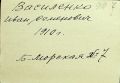 Василенко
Иван Осипович
1910 г.
Б-Морская № 7